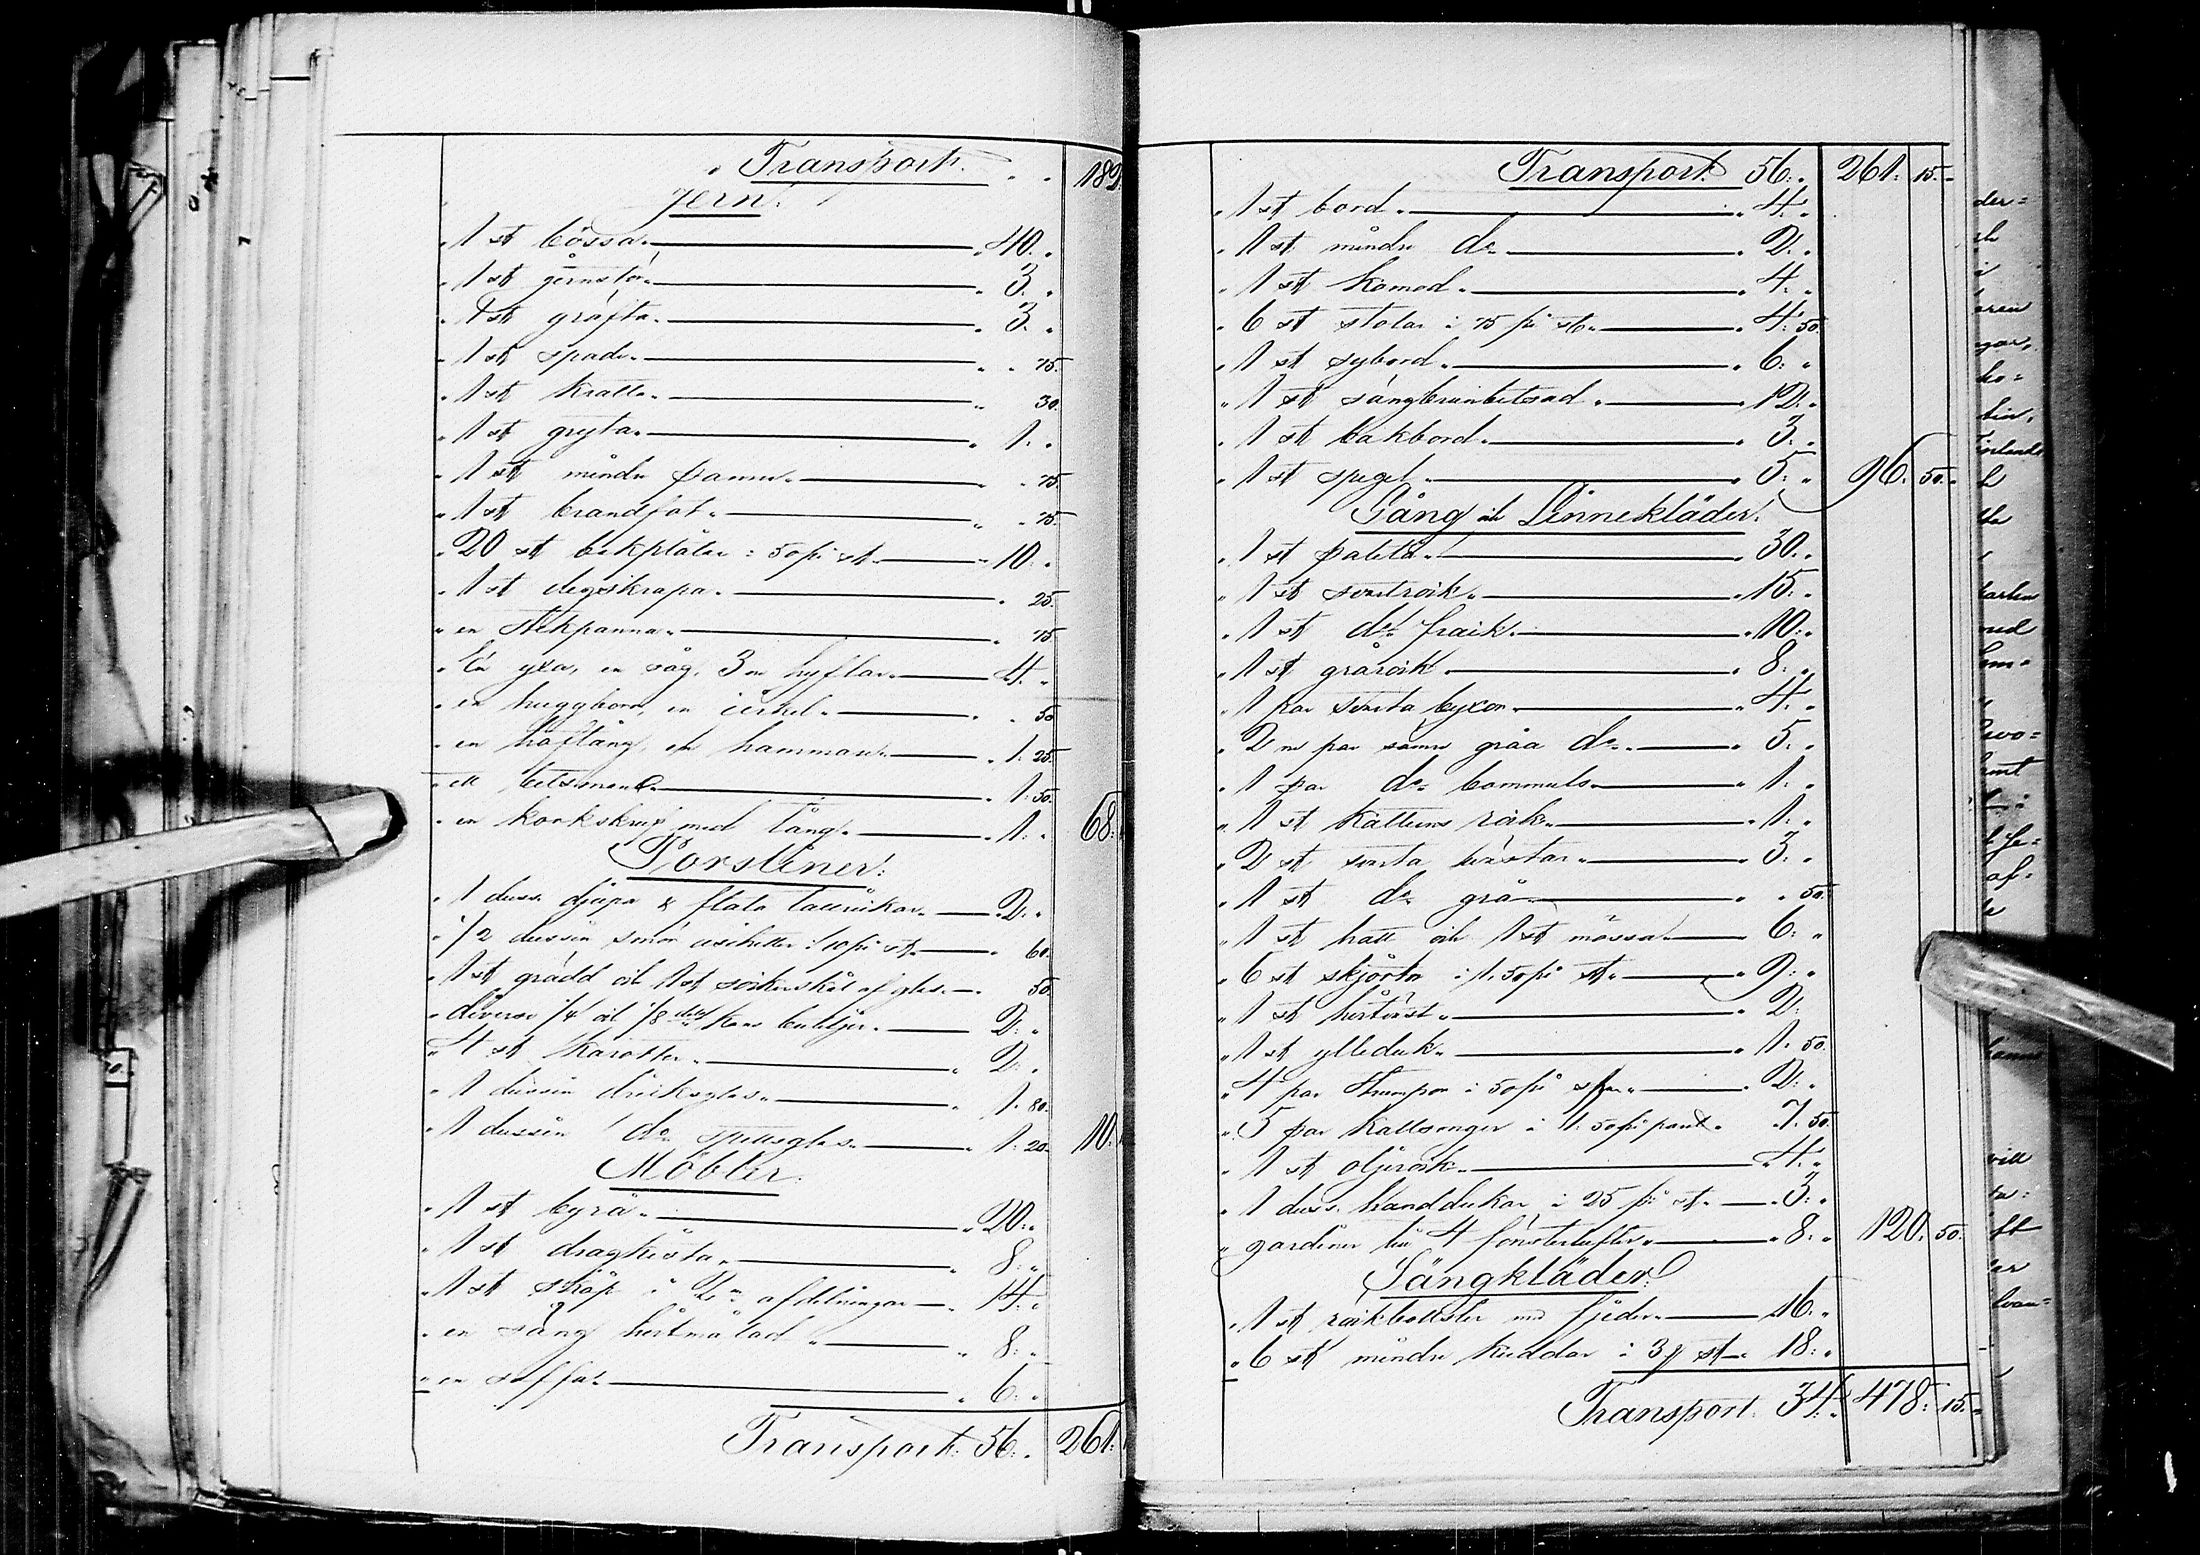 Transport. " " 182.
Jern:
" 1 st bössa " 40. "
" 1 st jernstör " 3. "
" 1 st gräfta " 3. "
" 1 st spade " " 75.
" 1 st kratta " " 30.
" 1 st gryta " 1. "
" 1 st mindre panna " " 75.
" 1 st brandfat " " 75.
" 20 st bekplåtar : 50 pi st " 10. "
" 1 st degskrapa " " 25.
" en stekpanna " " 75
" En yxa, en såg, 3 ne hyflar " 4. "
" en huggborr, en cirkel " " 50
" en håftång, en hammare " 1. 25.
" ett betsman " 1. 50.
" en korkskruf med tång " 1. " 68.
Porsliner:
" 1 duss. djupa & flata tallrikar " 2. "
" 1/2 dussin små assietter : 10 pi st " 60.
" 1 st grädd och 1 st sockerskål af glas " 50.
" diverse 1/4 och 1/8 dels kans buteljer " 2. "
" 4 st karotter " 2. "
" 1 dussin dricksglas " 1. 80.
" 1 dussin do spetsglas " 1. 20. 10.
Möbler.
" 1 st byrå " 20. "
" 1 st dragkista " 8. "
" 1 st skåp i 2ne afdelningar " 14. "
" en säng hvitmålad " 8. "
" en soffa " 6. "
Transport. 56. " 261.
Transport. 56. " 261. 15. "
" 1 st bord " 4. "
" 1 st mindre do " 2. "
" 1 st komod " 4. "
" 6 st stolar i 75 pi st " 4. 50.
" 1 st sybord " 6. "
" 1 st säng brunbetsad " 12. "
" 1 st bakbord " 3. "
" 1 st spegel " 5. " 96. 50. "
Gång och Linnekläder.
" 1 st paletå " 30. "
" 1 st svartrock " 15. "
" 1 st do frack " 10. "
" 1 st grårock " 8. "
" 1 par svarta byxor " 4. "
" 2 ne par sämre gråa do " 5. "
" 1 par do bommuls " 1. "
" 1 st kattuns rock " 1. "
" 2 st svarta västar " 3. "
" 1 st do grå " " 50.
" 1 st hatt och 1 st mössa " 6. "
" 6 st skjortor i 1. 50 pi st " 9. "
" 1 st 2.
" 1 st ylleduk " 1. 50.
" 4 par strumpor i 50 pi par " 2. "
" 5 par kallsonger i 1. 50 pi paret " 7. 50.
" 1 st oljerock " 4. "
" 1 duss. handdukar i 25 pi st " 3. "
" gardiner till 4 fönsterlufter " 8. " 120. 50.
Sängkläder.
" 1 st med fjeder " 16. "
" 6 st mindre kuddar i 3 st " 18. "
Transport. 34. " 478. 15. "